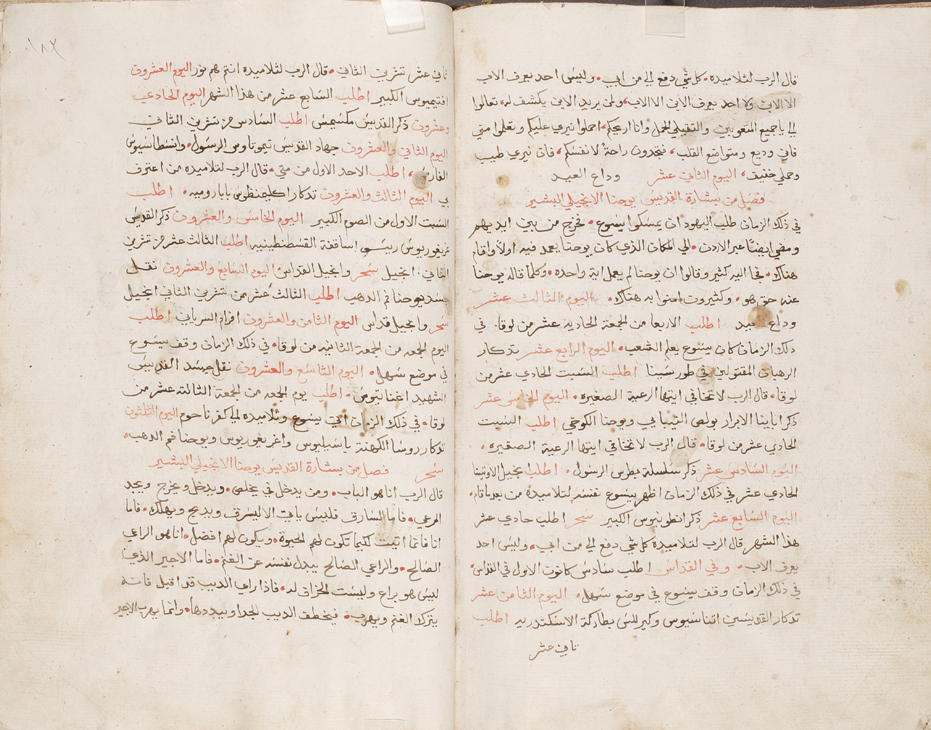 قال الرب لتلاميذه. كل شي دفع لي من ابي. وليس احد يعرف الاب
الا الابن ولا احد يعرف الابن الا الاب. ولمن يريد الابن يكشف له. تعالوا
الي يا جميع المتعوبين والثقيلي الحمل وانا اريحكم. احملوا نيري عليكم وتعلموا مني
فاني وديع ومتواضع القلب. تجدون راحة لانفسكم. فان نيري طيب
وحملي خفيف. اليوم الثاني عشر وداع العيد
فصل من بشارة القديس يوحنا الانجيلي البشير
في ذلك الزمان طلب اليهود ان يمسكوا يسوع. فخرج من بين ايديهم
ومضى ايضا عبر الاردن. الي المكان الذي كان يوحنا يعمد فيه اولا واقام
هناك. فجا اليه كثير وقالوا ان يوحنا لم يعمل اية واحده. وكلما قاله يوحنا
عنه حق هو. وكثيرون امنوا به هناك. اليوم الثالث عشر
وداع العيد اطلب الاربعا من الجمعة الحادية عشر من لوقا. في
ذلك الزمان كان يسوع يعلم الشعب. اليوم الرابع عشر تذكار
الرهبان المقتولين في طور سينا اطلب السبت الحادي عشر من
لوقا. قال الرب لا تخافي ايتها الرعية الصغيره. اليوم الخامس عشر
ذكر ابائنا الابرار بولص التيبايي ويوحنا الكوخي اطلب السبت
الحادي عشر من لوقا. قال الرب لا تخافي ايتها الرعية الصغيره.
اليوم السادس عشر ذكر سلسلة بطرس الرسول. اطلب انجيل الاوثينا
الحادي عشر في ذلك الزمان اظهر يسوع نفسه لتلاميذه من بعد ما قام.
اليوم السابع عشر ذكر انطونيوس الكبير سحر اطلب حادي عشر
هذا الشهر قال الرب لتلاميذه كل شي دفع لي من ابي. وليس احد
يعرف الاب. وفي القداس اطلب سادس كانون الاول في القداس
في ذلك الزمان وقف يسوع في موضع سهل. اليوم الثامن عشر
تذكار القديسين اثناسيوس وكيرللس بطاركة الاسكندريه اطلب
ثاني عشر
١٨٣
ثاني عشر تشرين الثاني. قال الرب لتلاميذه انتم هم نور اليوم العشرون
افتيميوس الكبير اطلب السابع عشر من هذا الشهر اليوم الحادي
وعشرون ذكر القديس مكسيمس اطلب السادس من تشرين الثاني
اليوم الثاني والعشرون جهاد القديس تيموتاوس الرسول. وانسطاسيوس
الفارسي. اطلب الاحد الاول من متى. قال الرب لتلاميذه من اعترف
بي اليوم الثالث والعشرون تذكار اكليمنظوس بابا روميه. اطلب
السبت الاول من الصوم الكبير اليوم الخامس والعشرون ذكر القديس
غريغوريوس رييس اساقفة القسطنطينيه اطلب الثالث عشر من تشرين
الثاني. انجيل سحر وانجيل القداس اليوم السابع والعشرون نقل
جسد يوحنا فم الدهب اطلب الثالث عشر من تشرين الثاني انجيل
سحر وانجيل قداس اليوم الثامن والعشرون افرام السرياني اطلب
اليوم الجمعه من الجمعة الثانيه من لوقا. في ذلك الزمان وقف يسوع
في موضع سهل. اليوم التاسع والعشرون نقل جسد القديس
الشهيد اغناتيوس. اطلب يوم الجمعه من الجمعة الثالثه عشر من
لوقا. في ذلك الزمان اتي يسوع وتلاميذه الي كفرناحوم اليوم الثلثون
تذكار روسا الكهنة باسيليوس واغريغوريوس ويوحنا فم الدهب.
سحر فصل من بشارة القديس يوحنا الانجيلي البشير
قال الرب انا هو الباب. ومن يدخل بي يخلص. ويدخل ويخرج ويجد
المرعي. فاما السارق فليس ياتي الا ليسرق ويدبح ويهلك. فاما
انا فانما اتيت لكيما تكون لهم الحيوة. ويكون لهم افضل. انا هو الراعي
الصالح. والراعي الصالح يبدل نفسه عن الغنم. فاما الاجير الذي
ليس هو براع وليست الخراف له. فاذا راى الديب قد اقبل فانه
يترك الغنم ويهرب. فيخطف الديب الخراف ويبددها. وانما يهرب الاجير